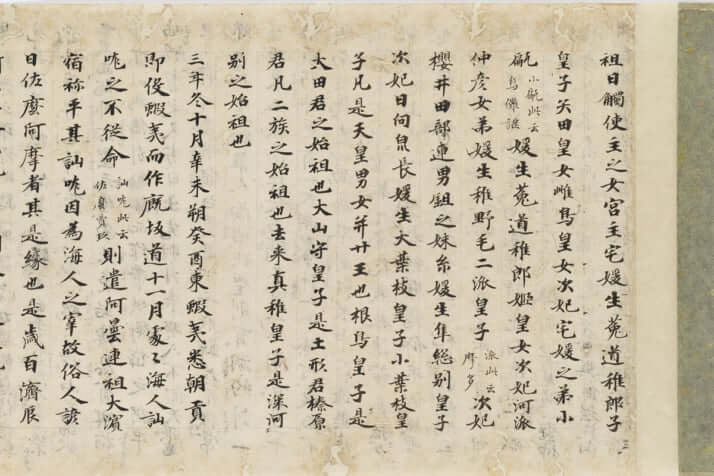 祖日觸使主之女宮主宅媛生菟道稚郎子
皇子矢田皇女雌鳥皇女次妃宅媛之弟小
甂小甂此云烏儺謎媛生菟道稚郎姬皇女次妃河派
仲彦女弟媛生稚野毛二派皇子派此云摩多次妃
櫻井田部連男鉏之妹糸媛生隼総別皇子
次妃日向泉長媛生大葉枝皇子小葉枝皇
子凡是天皇男女并廿王也根鳥皇子是
大田君之始祖也大山守皇子是土形君榛原
君凡二族之始祖也去来真稚皇子是深河
別之始祖也
三年冬十月辛未朔癸酉東蝦夷悉朝貢
即役蝦夷而作厩坂道十一月處々海人訕
哤之不從命訕哤此云佐麼賣玖則遣阿曇連祖大濱
宿祢平其訕哤因為海人之宰故俗人諺
曰佐麼阿摩者其是縁也是歳百濟辰